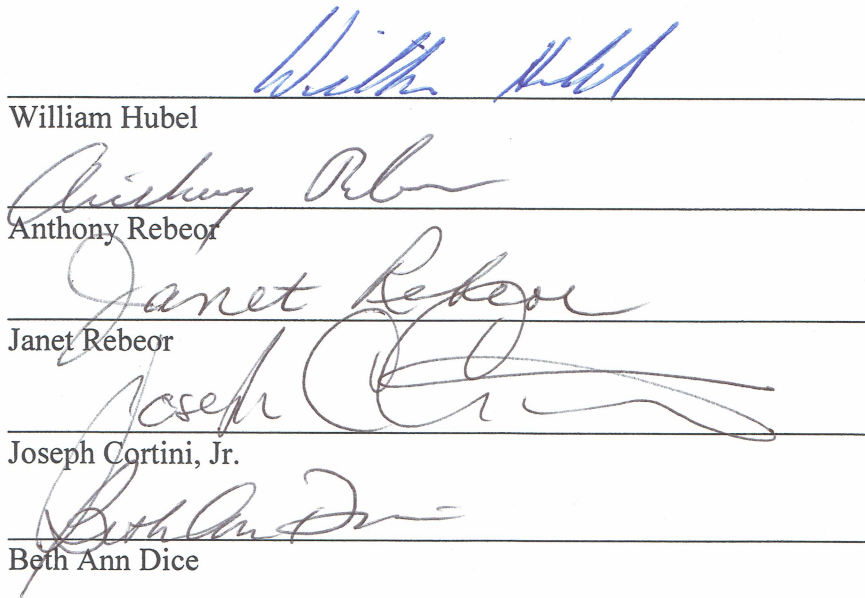 William Hubel
William Hubel
Anthony Rebeor
Anthony Rebeor
Janet Rebeor
Janet Rebeor
Joseph C
Joseph Cortini, Jr.
Beth Ann Dice
Beth Ann Dice